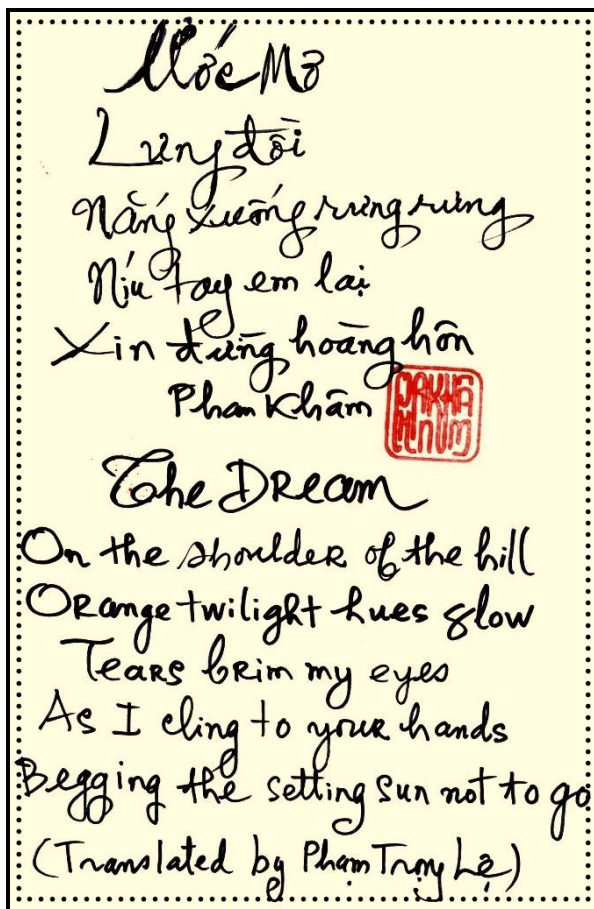 Ước Mơ
Lưng đồi
Nắng xuống rưng rưng
Níu tay em lại
Xin đừng hoàng hôn
Phan Khâm
The Dream
On the shoulder of the hill
Orange twilight hues glow
Tears brim my eyes
As I cling to your hands
Begging the setting sun not to go
(Translated by Phạm Trọng Lệ)